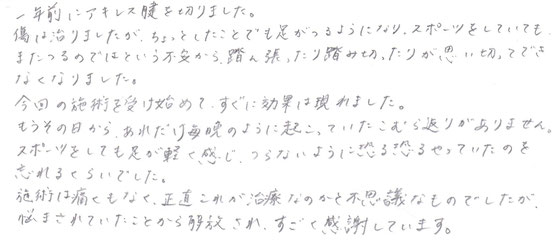 一年前にアキレス腱を切りました。
傷は治りましたが、ちょっとしたことでも足がつるようになり、スポーツをしていても、
またつるのではという不安から、踏ん張ったり踏み切ったりが思い切ってでき
なくなりました。
今回の施術を受け始めて、すぐに効果は現れました。
もうその日から、あれだけ毎晩のように起こっていたこむら返りがありません。
スポーツをしても足が軽く感じ、つらないように恐る恐るやっていたのを
忘れるくらいでした。
施術は痛くもなく、正直これが治療なのかと不思議なものでしたが、
悩まされていたことから解放され、すごく感謝しています。